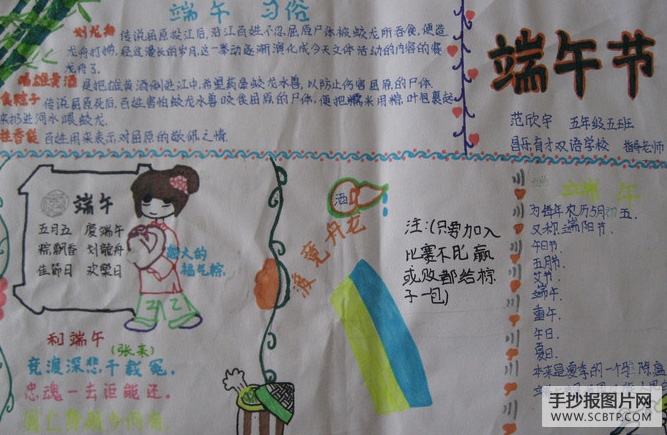 端午 习俗
划龙舟 传说屈原投江后,沿江百姓不忍屈原尸体被蛟龙所吞食,便造
龙舟打捞,经过漫长的岁月,这一举动逐渐演化成今天文体活动的内容的赛
龙舟了.
喝雄黄酒 是把雄黄酒倒进江中,希望药晕蛟龙水兽,以防止伤害屈原的尸体.
食粽子 传说屈原死后,百姓害怕蛟龙水兽咬食屈原的尸体,便把糯米用粽叶包裹起
来扔进河水喂蛟龙.
挂香包 百姓用来表示对屈原的敬佩之情.
端午节
范欣宇 五年级五班
昌乐育才双语学校 指导老师
端午
五月五 度端午
粽飘香 划龙舟
佳节日 欢聚日
福气粽.
和端午
(张耒)
竞渡深悲千载冤,
忠魂一去讵能还,
酒
渡竞舟龙
注:(只要加入
比赛不比赢
或败都给粽
子一包)
端午
为每年农历5月初五.
又称端阳节.
午日节.
五月节.
艾节.
端午.
重午.
午日.
夏日.
手抄报图片网
WWW.SCBTP.COM